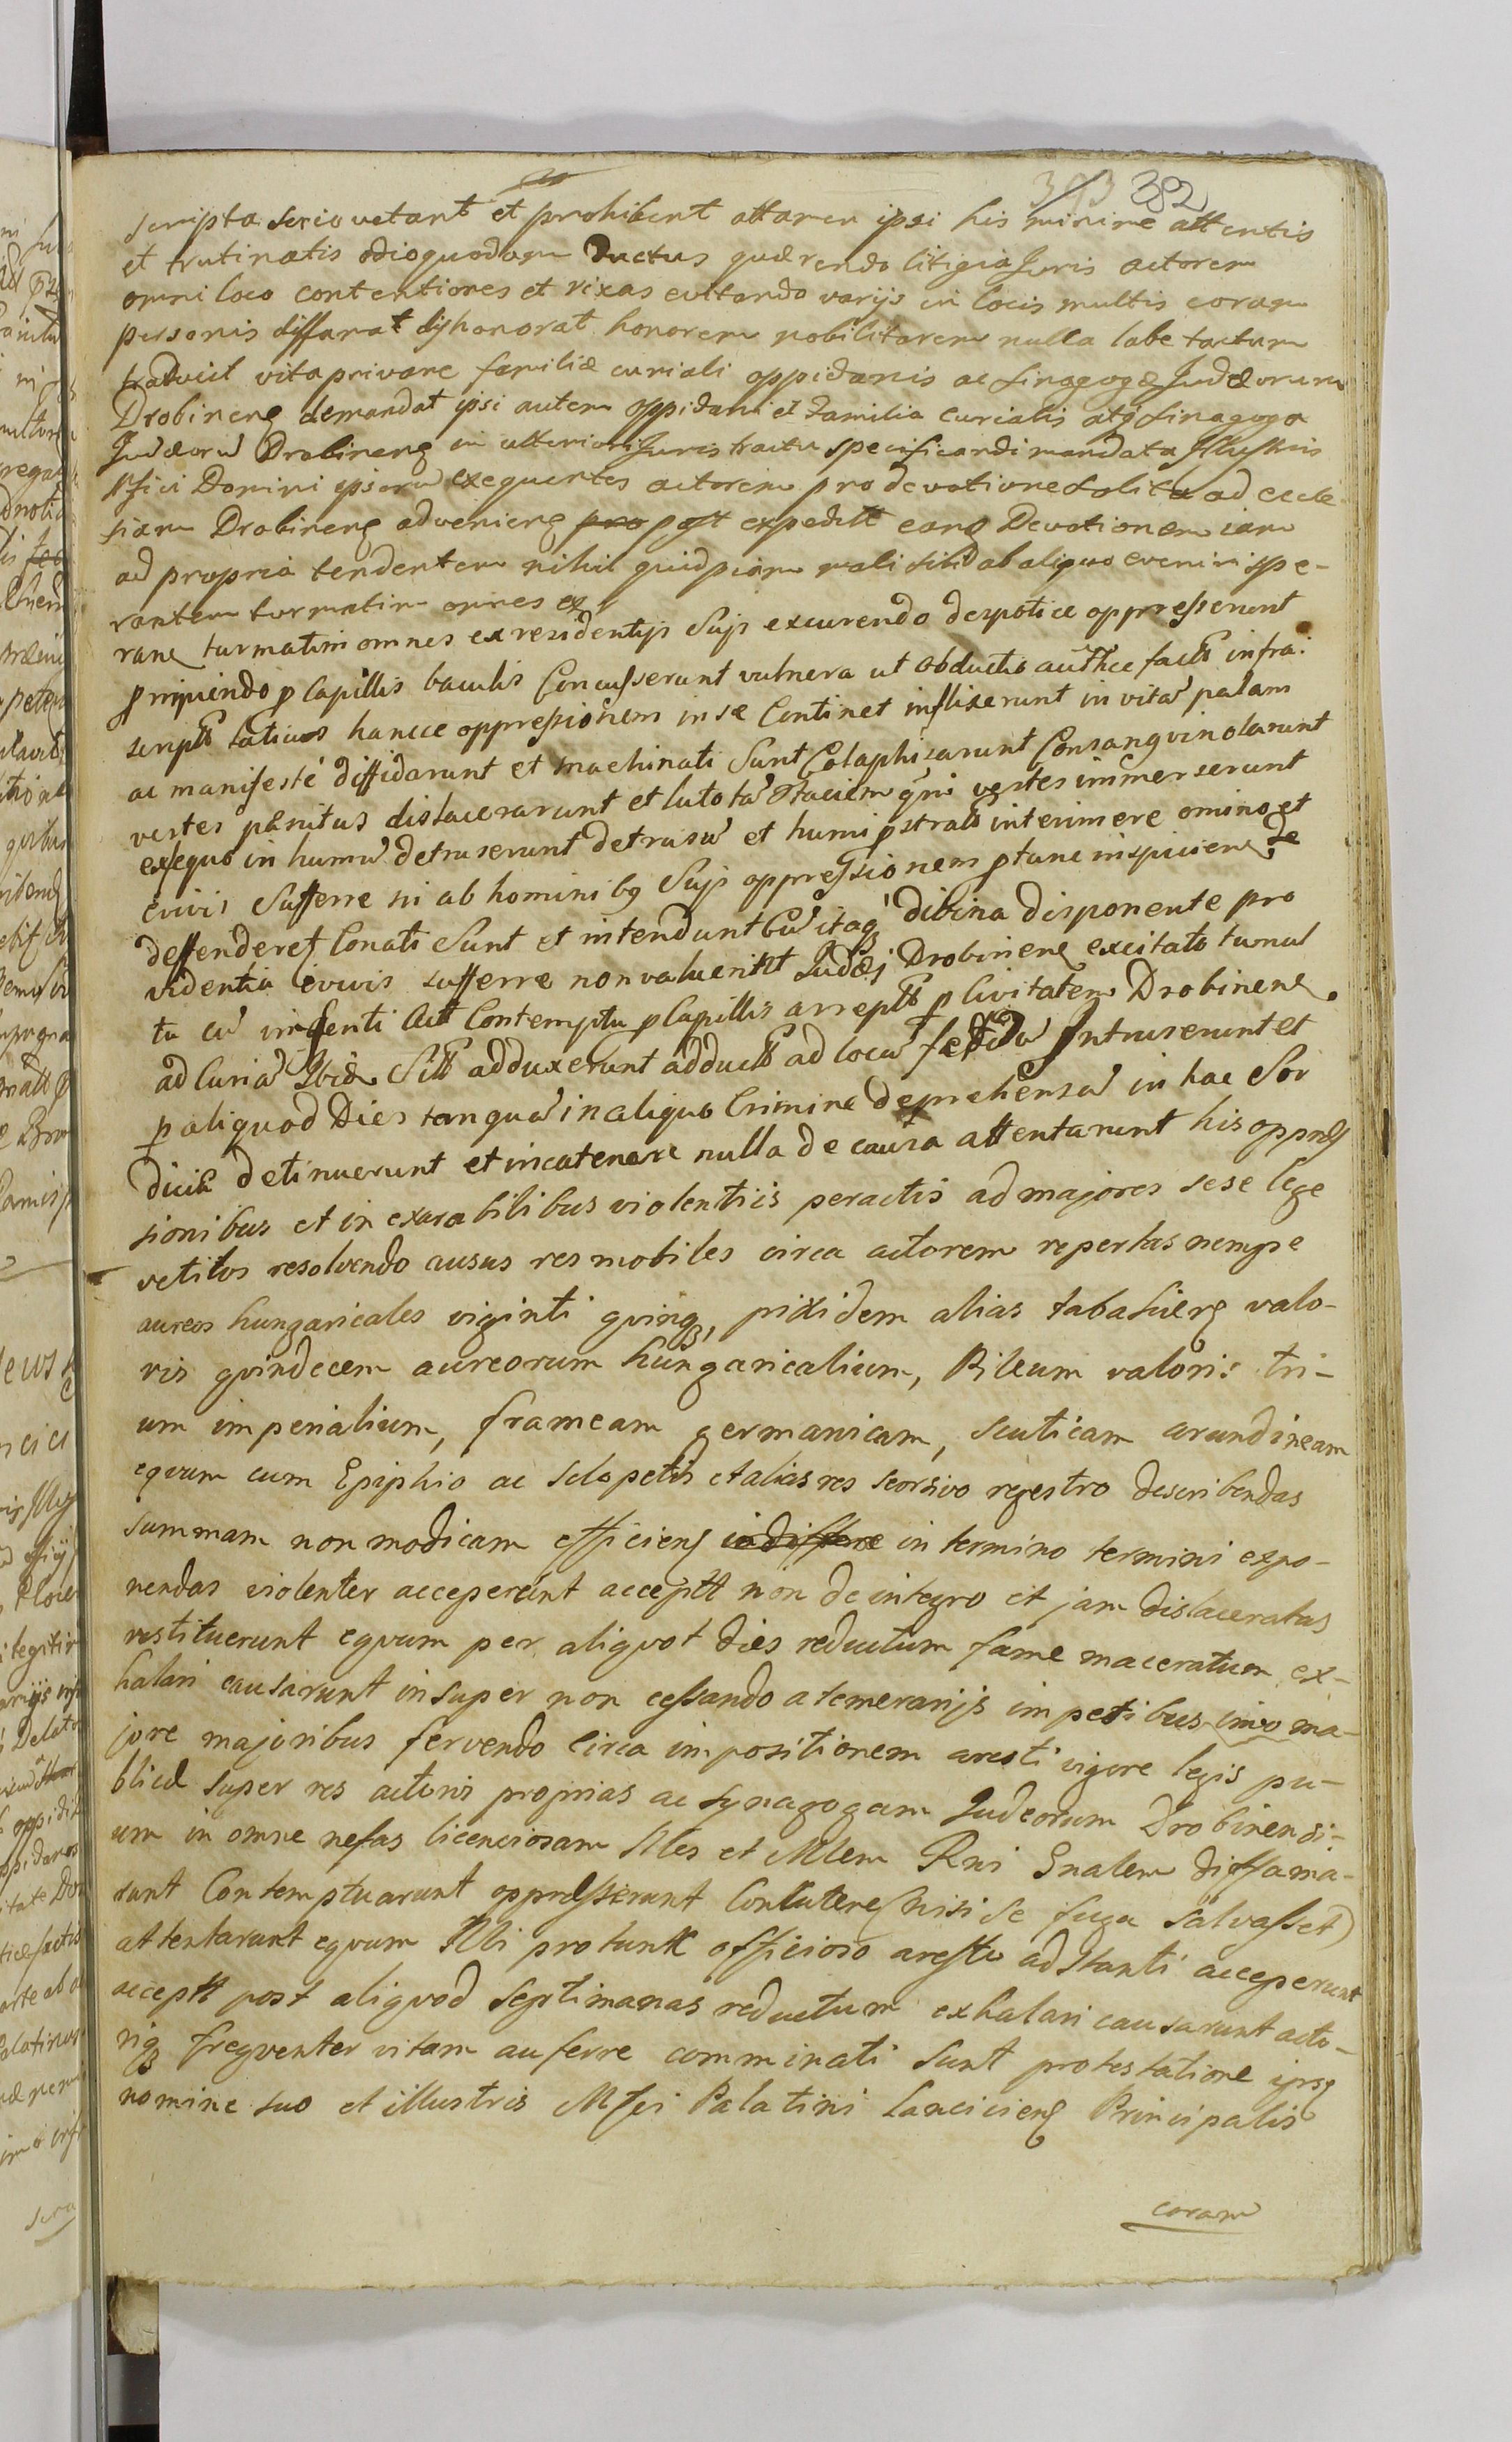 393 382
scripta serio vetant et prohibent attamen ipsi his minime attentis
et trutinatis odio quodam Ductus quærendo litigia Juris actorem
omni loco contentiones et rixas evitando varijs in locis multis coram
personis diffamat dishonorat honorem nobilitarem nulla labe tactum
traducit vita privare familiæ curiali oppidanis ac sinagogæ Judæorum
Drobinens demandat ipsi autem oppidani et Familia curialis atq sinagoga
Judæorū Drobinens in ulteriori Juris tractu specificandi mandata Illustris
Mfici Domini ipsorū exequentes actorem pro devotione solita ad eccle-
siam Drobinens adveniens pro post expedtt eans Devotionem iam
ad propria tendentem nihil quidpiam mali sibi ab aliquo eveniri spe-
rantem turmatim omnes ex
rans turmatim omnes ex residentijs Sujs excurendo despotice oppresserunt
rapiendo p Capillis baculis Concusserunt vulnera ut obductio autthce facta infra:
scripta latius hancce oppressionem in se Continet inflixerunt in vitā palam
ac manifesté diffidarunt et machinati Sunt Colaphisarunt Consangvinolarunt
vestes penitus dislacerarunt et luto tā Faciem qui vestes immerserunt
ex equo in humū detruserunt detrusū et humi pstratū interimere omino et
evivis Sufferre ni ab hominibq Sujs oppressionem ptunc inspiciens se
deffenderet Conati Sunt et intendunt Cū itaq divina disponente pro
videntia evivis sufferre non valuerint Judæj Drobinens excitato tumul
tu cū ingenti Act Contemptu p Capillis arreptt p Civitatem Drobinens
ad Curiā Ibid Sitt adduxerunt adductt ad locū Intruserunt et
p aliquod Dies tanquā in aliquo Crimine deprehensū in hac Sor
dicie detinuerunt et incatenare nulla de causa attentarunt his oppres
sionibus et in exarabilibus violentiis peractis ad majores sese lege
vetitos resolvendo ausus res mobiles circa actorem repertas nempe
aureos hungaricales viginti qvinq, pixidem alias tabakiers valo-
ris qvindecem aureorum hungaricalium, Pileum valoris tri-
um imperialium, frameam germanicam, scuticam arundineam
eqvum cum Epiphio ac sclopetis et alias res seorsivo regestro describendas
summam non modicam efficiens in termino termini expo-
nendas violenter acceperunt acceptt non de integro et jam dislaceratas
restituerunt eqvum per aliqvot dies reductum fame maceratum ex-
halari causarunt insuper non cessando a temerarijs impetibus imo ma-
jore majoribus fervendo circa impositionem aresti vigore legis pu-
blicæ super res actoris proprias ac synagogam Judeorum Drobinensi-
um in omne nefas licenciosam Mles et Mlem Rni Gnalem diffama-
runt Contemptuarunt oppresserunt Concutere (nisi se fuga salvasset)
attentarunt eqvum Mli protunc officioso aresto adstanti acceperunt
acceptt post aliqvod septimanas reductum exhalari causarunt acto-
riq freqventer vitam auferre comminati sunt protestatione ipsq
nomine suo et illustris Mfci Palatini Lanciciens Principalis
coram